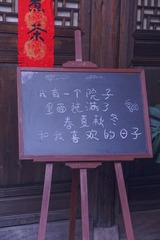 煮茶
我有一个院子
里面种满了
春夏秋冬
和我喜欢的日子